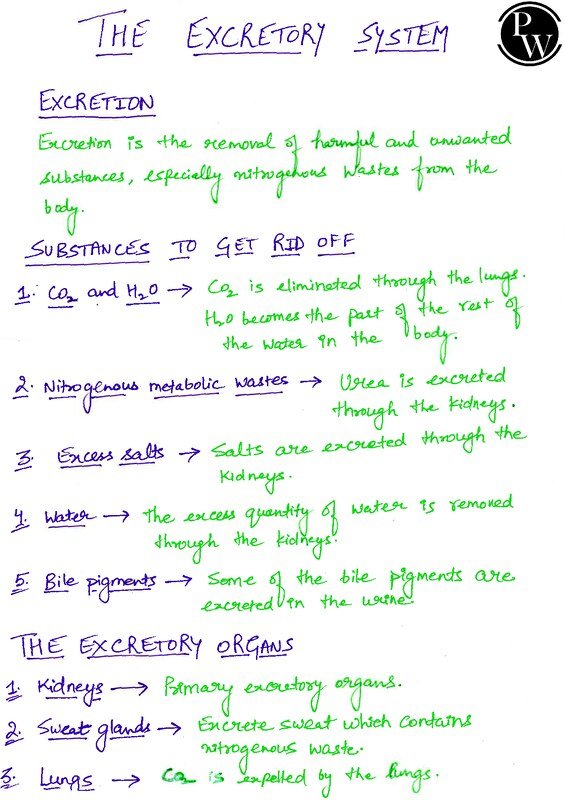 THE EXCRETORY SYSTEM
PW
EXCRETION
Excretion is the removal of harmful and unwanted
substances, especially nitrogenous wastes from the
body.
SUBSTANCES TO GET RID OFF
1. CO2 and H2O → CO2 is eliminated through the lungs.
H2O becomes the part of the rest of
the water in the body.
2. Nitrogenous metabolic wastes → Urea is excreted
through the kidneys.
3. Excess salts → Salts are excreted through the
kidneys.
4. Water → The excess quantity of water is removed
through the kidneys.
5. Bile pigments → Some of the bile pigments are
excreted in the urine.
THE EXCRETORY ORGANS
1. Kidneys → Primary excretory organs.
2. Sweat glands → Excrete sweat which contains
nitrogenous waste.
3. Lungs → CO2 is expelled by the lungs.